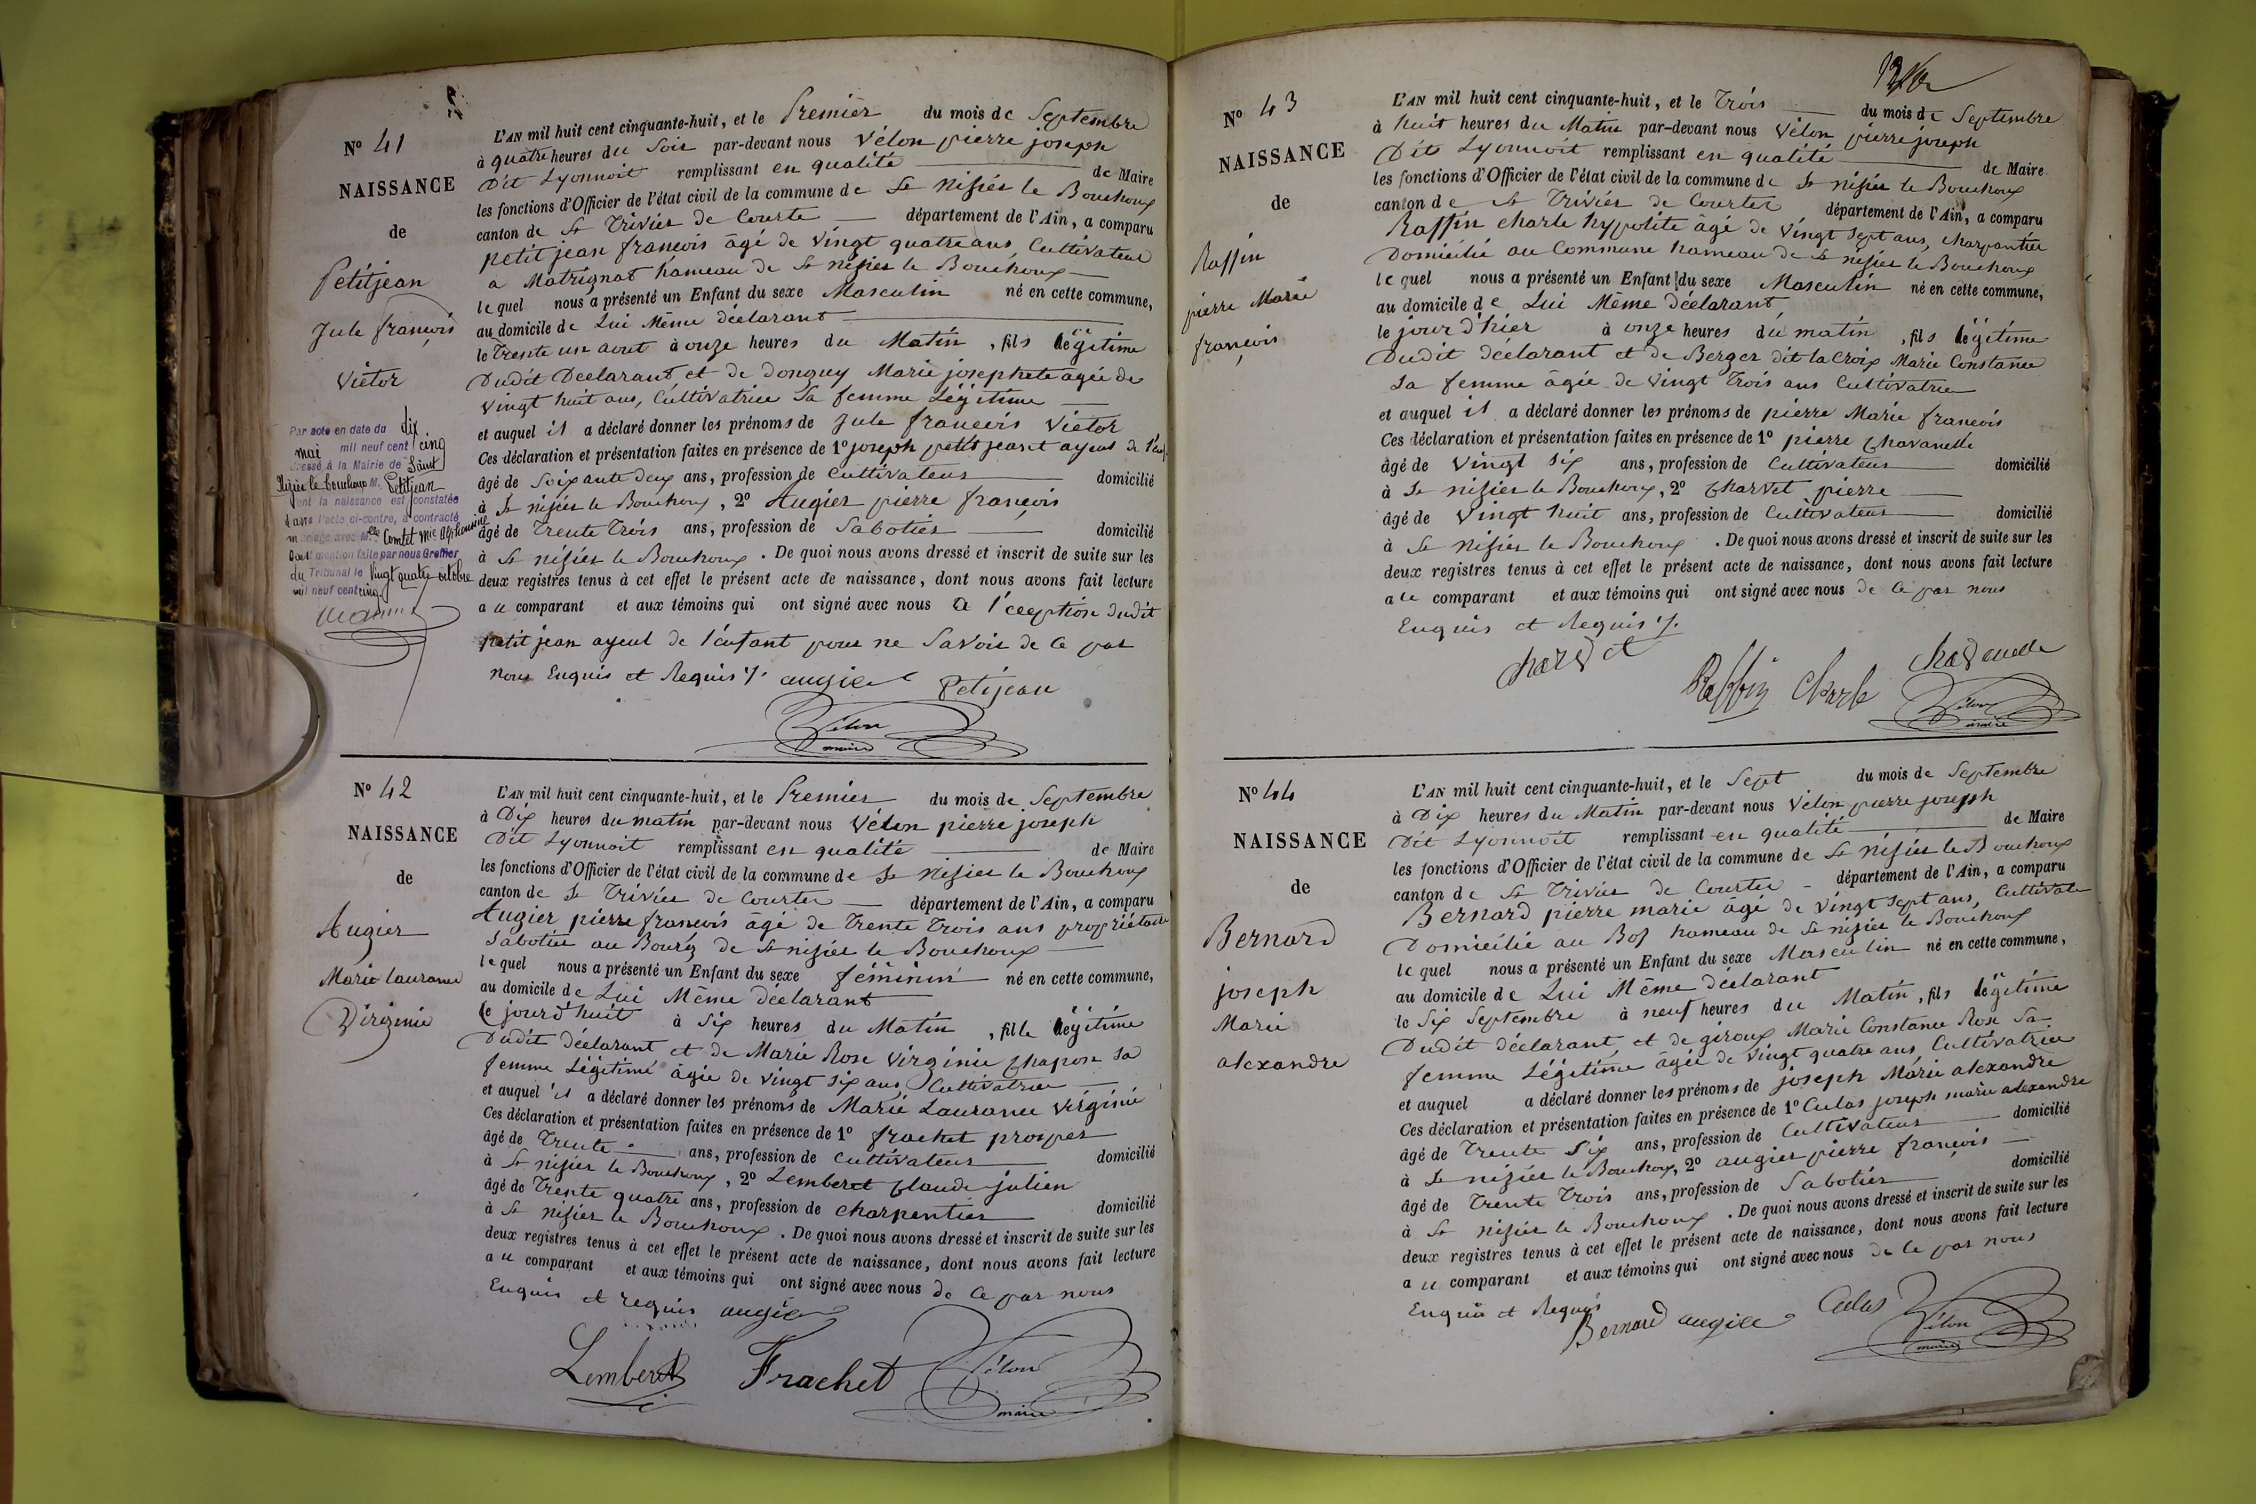 Nº 41
NAISSANCE
de
Petitjean
Jule françois
Victor
Par acte en date du dix
mai mil neuf cent cinq
dressé à la Mairie de Saint
Nizier le bouchoux M. Petitjean
dont la naissance est constatée
dans l'acte ci-contre, a contracté
mariage avec Melle Comtet Mie Alphonsine
Dont mention faite par nous Greffier
du Tribunal le vingt quatre octobre
mil neuf cent cinq
L'AN mil huit cent cinquante-huit, et le Premier du mois de Septembre
à quatre heures du Soir par-devant nous Vélon pierre joseph
Dit Lyonnoit remplissant en qualité de Maire
les fonctions d'Officier de l'état civil de la commune de St Nisier le Bouchoux
canton de St Trivier de Courte département de l'Ain, a comparu
petit jean francois âgé de vingt quatre ans, Cultivateur
a Matrignat hameau de St nisier le Bouchoux
le quel nous a présenté un Enfant du sexe Masculin né en cette commune,
au domicile de Lui Même déclarant
le trente un aout à onze heures du Matin, fils légitime
Dudit Declarant et de donguy Marie josephete agée de
vingt huit ans, Cultivatrice Sa femme Légitime
et auquel il a déclaré donner les prénoms de Jule francois Victor
Ces déclaration et présentation faites en présence de 1º joseph petit jean et ayeul de l'enf.
âgé de Soixante deux ans, profession de Cultivateur domicilié
à St nisier le Bouchoux, 2º Augier pierre françois
âgé de Trente Trois ans, profession de Sabotier domicilié
à St nisier le Bouchoux. De quoi nous avons dressé et inscrit de suite sur les
deux registres tenus à cet effet le présent acte de naissance, dont nous avons fait lecture
au comparant et aux témoins qui ont signé avec nous a l'éception dudit
petit jean ayeul de l'enfant pour ne Savoir de ce par
nous Enquis et Requis ./. augier Petijean
Vélon
maire
Nº 42
NAISSANCE
de
Augier
Marie laurance
Virginie
L'AN mil huit cent cinquante-huit, et le Premier du mois de Septembre
à Dix heures du matin par-devant nous Vélon pierre joseph
Dit Lyonnoit remplissant en qualité de Maire
les fonctions d'Officier de l'état civil de la commune de St Nisier le Bouchoux
canton de St Trivier de Courte département de l'Ain, a comparu
Augier pierre francois âgé de Trente Trois ans propriétaire
Sabotier au Bourg de St nisier le Bouchoux
le quel nous a présenté un Enfant du sexe féminin né en cette commune,
au domicile de Lui Même déclarant
le jourd'huit à Six heures du Matin, fille légitime
Dudit déclarant et de Marie Rose Virginie Chapon sa
femme Légitime âgée de vingt Six ans, Cultivatrice
et auquel il a déclaré donner les prénoms de Marie Laurance Virginie
Ces déclaration et présentation faites en présence de 1º frachet prosper
âgé de Trente ans, profession de Cultivateur domicilié
à St nisier le Bouchoux, 2º Lemberet Claude julien
âgé de Trente quatre ans, profession de charpentier domicilié
à St nisier le Bouchoux. De quoi nous avons dressé et inscrit de suite sur les
deux registres tenus à cet effet le présent acte de naissance, dont nous avons fait lecture
au comparant et aux témoins qui ont signé avec nous de ce par nous
Enquis et requis augier
Lemberet Frachet Vélon
maire
Nº 43
NAISSANCE
de
Raffin
pierre Marie
françois
L'AN mil huit cent cinquante-huit, et le Trois du mois de Septembre
à huit heures du Matin par-devant nous Vélon pierre joseph
Dit Lyonnoit remplissant en qualité de Maire
les fonctions d'Officier de l'état civil de la commune de St nisier le Bouchoux
canton de St Trivier de Courter département de l'Ain, a comparu
Raffin charle hypolite âgé de vingt Sept ans, charpantier
Domicilié au Commune hameau de St nisier le Bouchoux
le quel nous a présenté un Enfant du sexe Masculin né en cette commune,
au domicile de Lui Même déclarant
le jour d'hier à onze heures du matin, fils légitime
Dudit déclarant et de Berger dit la Croix Marie Constance
Sa femme âgée de vingt Trois ans Cultivatrice
et auquel il a déclaré donner les prénoms de pierre Marie francois
Ces déclaration et présentation faites en présence de 1º pierre Chavanelle
âgé de vingt six ans, profession de Cultivateur domicilié
à St nisier le Bouchoux, 2º Charvet pierre
âgé de Vingt huit ans, profession de Cultivateur domicilié
à St nisier le Bouchoux. De quoi nous avons dressé et inscrit de suite sur les
deux registres tenus à cet effet le présent acte de naissance, dont nous avons fait lecture
au comparant et aux témoins qui ont signé avec nous de ce par nous
Enquis et Requis ./.
charvet Raffin Charle chavanelle
Vélon
maire
Nº 44
NAISSANCE
de
Bernard
joseph
Marie
alexandre
L'AN mil huit cent cinquante-huit, et le Sept du mois de Septembre
à Dix heures du Matin par-devant nous Vélon pierre joseph
Dit Lyonnoit remplissant en qualité de Maire
les fonctions d'Officier de l'état civil de la commune de St Nisier le Bouchoux
canton de St Trivier de Courter département de l'Ain, a comparu
Bernard pierre marie âgé de vingt sept ans, Cultivate
Domicilié au Bos hameau de St nisier le Bouchoux
le quel nous a présenté un Enfant du sexe Masculin né en cette commune,
au domicile de Lui Même déclarant
le Six Septembre à neuf heures du Matin, fils légitime
Dudit déclarant et de giroux Marie Constance Rose Sa
femme Légitime âgée de vingt quatre ans, Cultivatrice
et auquel a déclaré donner les prénoms de joseph Marie alexandre
Ces déclaration et présentation faites en présence de 1º Culas joseph marie alexandre
âgé de Trente Six ans, profession de Cultivateur domicilié
à St nizier le Bouchoux, 2º augier pierre francois
âgé de Trente Trois ans, profession de Sabotier domicilié
à St nisier le Bouchoux. De quoi nous avons dressé et inscrit de suite sur les
deux registres tenus à cet effet le présent acte de naissance, dont nous avons fait lecture
au comparant et aux témoins qui ont signé avec nous de ce par nous
Enquis et Requis
Bernard augier Culas Vélon
maire